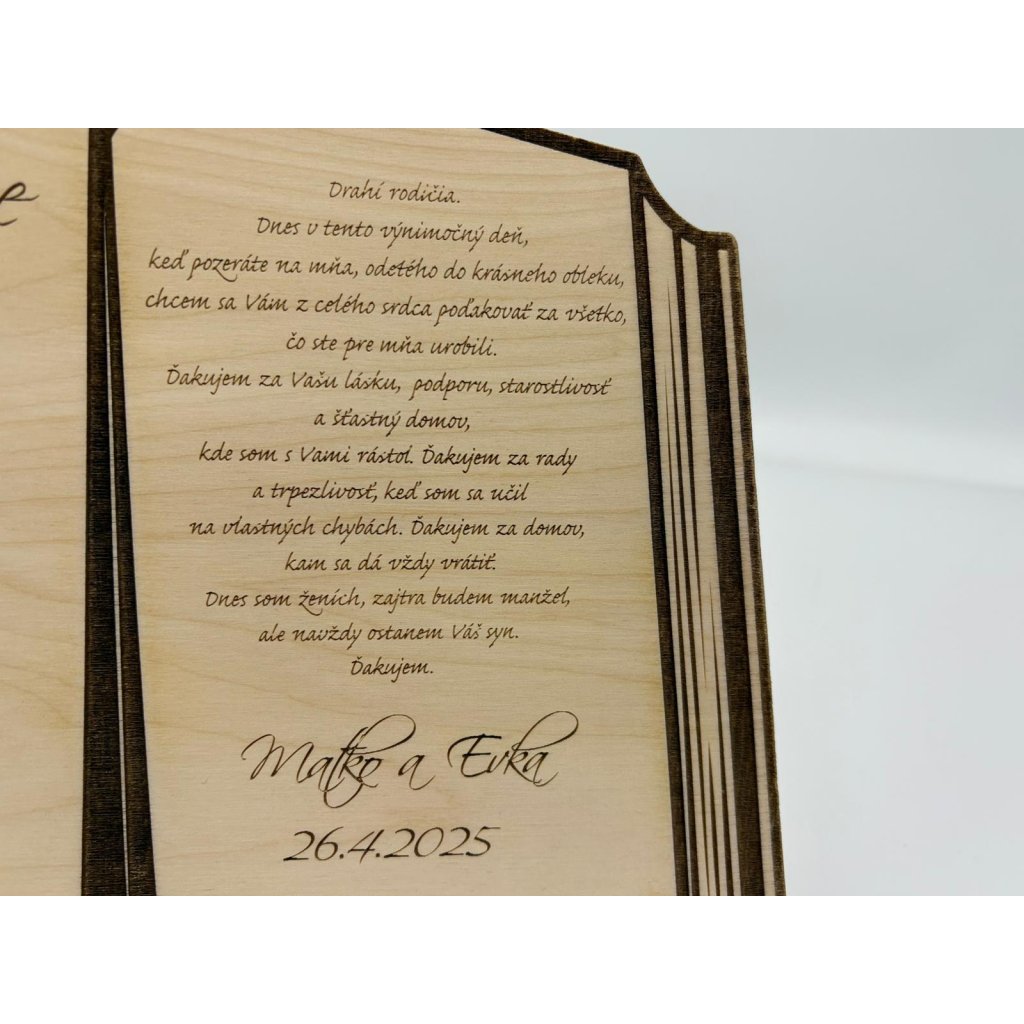 e
Drahí rodičia.
Dnes v tento výnimočný deň,
keď pozeráte na mňa, odetého do krásneho obleku,
chcem sa Vám z celého srdca poďakovať za všetko,
čo ste pre mňa urobili.
Ďakujem za Vašu lásku, podporu, starostlivosť
a šťastný domov,
kde som s Vami rástol. Ďakujem za rady
a trpezlivosť, keď som sa učil
na vlastných chybách. Ďakujem za domov,
kam sa dá vždy vrátiť.
Dnes som ženích, zajtra budem manžel,
ale navždy ostanem Váš syn.
Ďakujem.
Maťko a Evka
26.4.2025